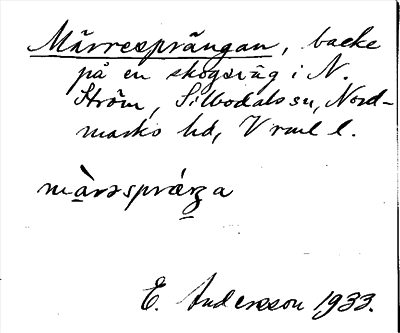 Märresprängan, backe
på en skogsväg i N.
Ström, Silbodals sn, Nord-
marks hd, Vrml l.
märəspräŋa
E. Andersson 1933.